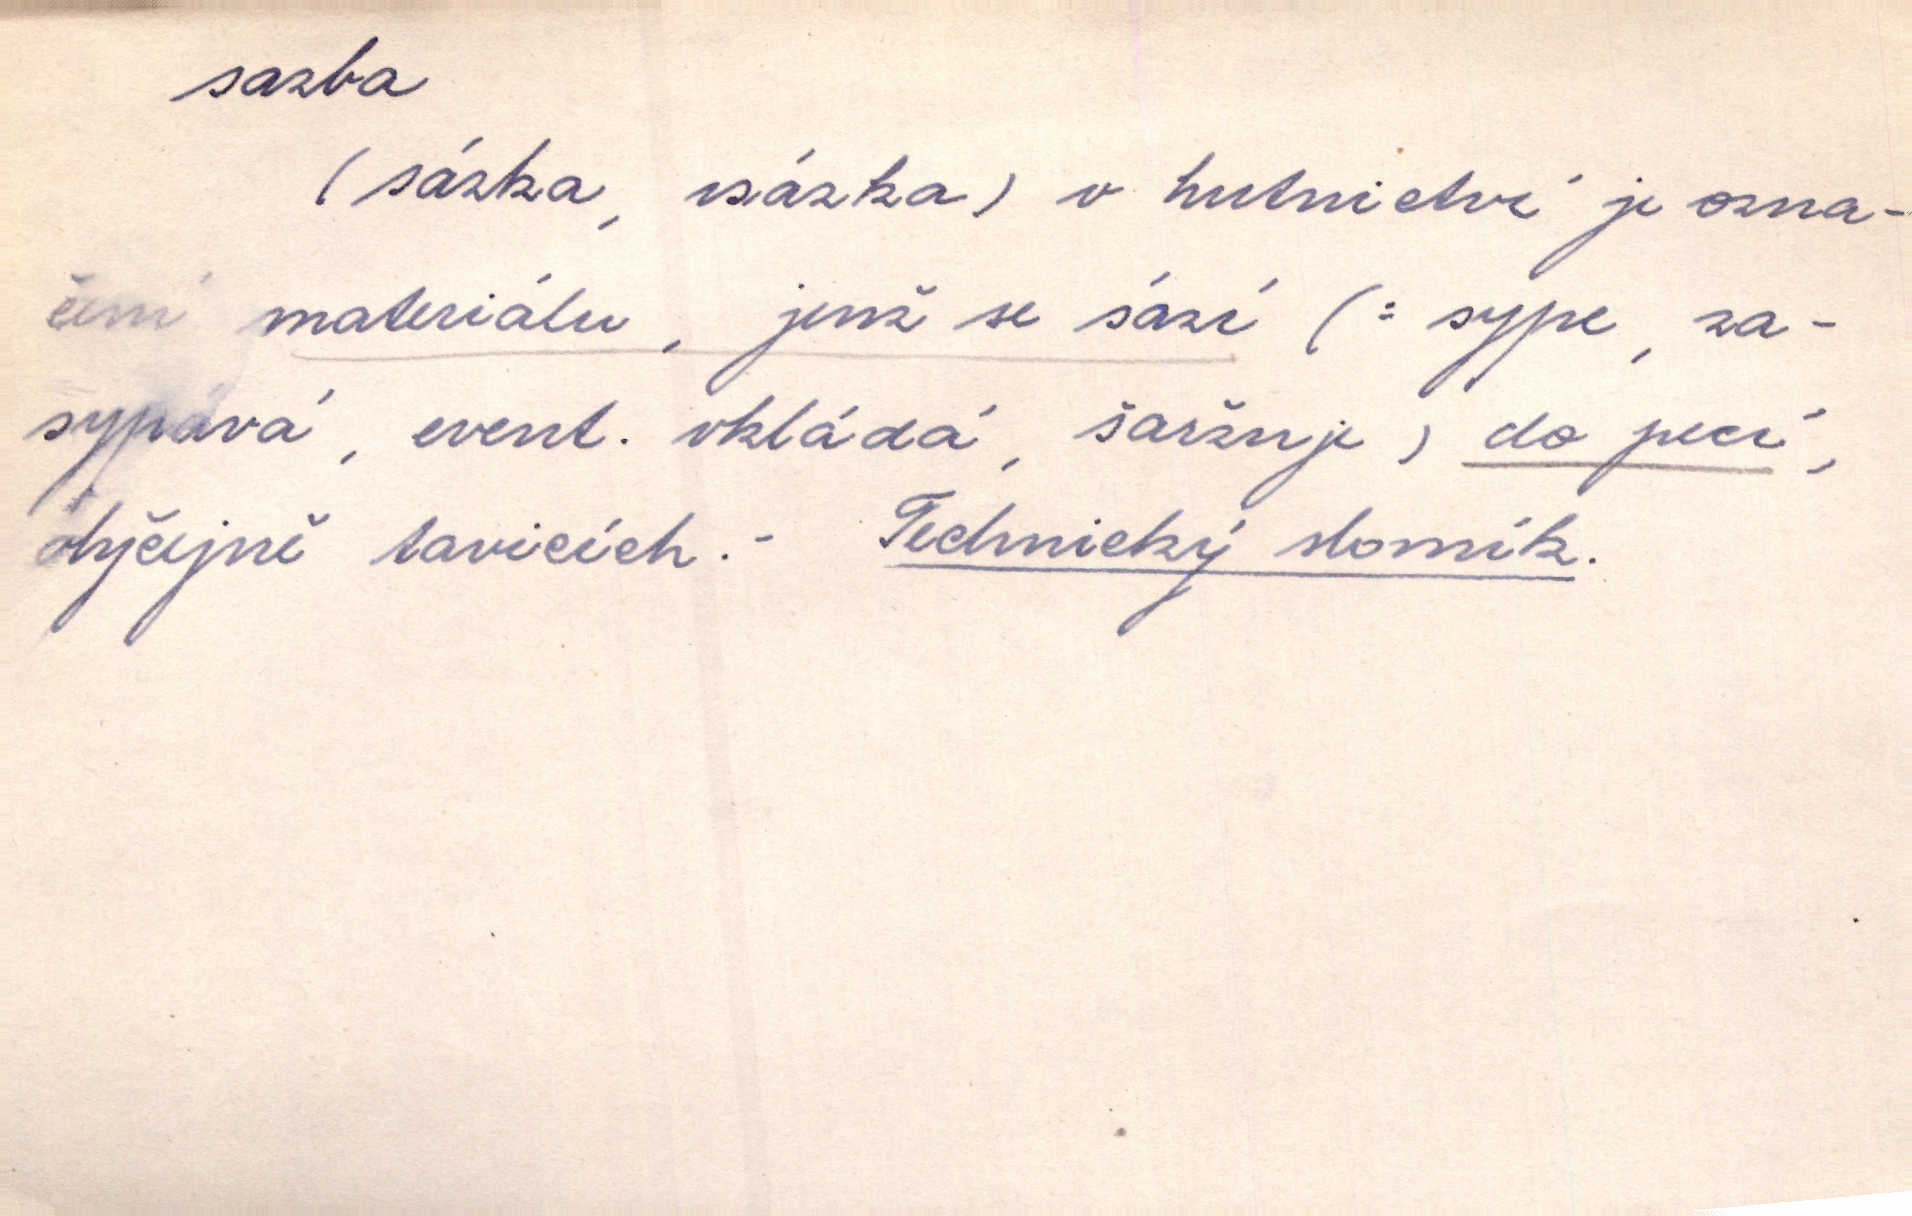 sazba
(sázka, vsázka) v hutnictví je ozna-
čení materiálu, jenž se sází (= sype, za-
sypává, event. vkládá, šaržuje) do pecí,
obyčejně tavicích. - Technický slovník.